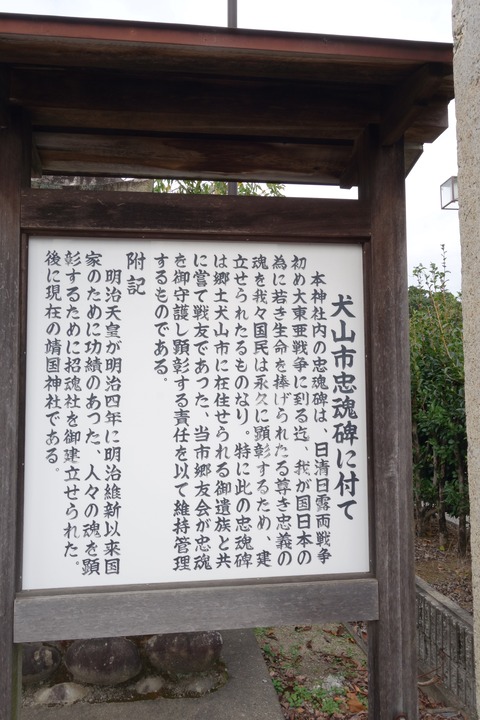 犬山市忠魂碑に付て
本神社内の忠魂碑は、日清日露両戦争
初め大東亜戦争に到る迄、我が国日本の
為に若き生命を捧げられたる尊き忠義の
魂を我々国民は永久に顕彰するため、建
立せられたるものなり。特に此の忠魂碑
は郷土犬山市に在住せられる御遺族と共
に嘗て戦友であった、当市郷友会が忠魂
を御守護し顕彰する責任を以て維持管理
するものである。
附記
明治天皇が明治四年に明治維新以来国
家のために功績のあった、人々の魂を顕
彰するために招魂社を御建立せられた。
後に現在の靖国神社である。